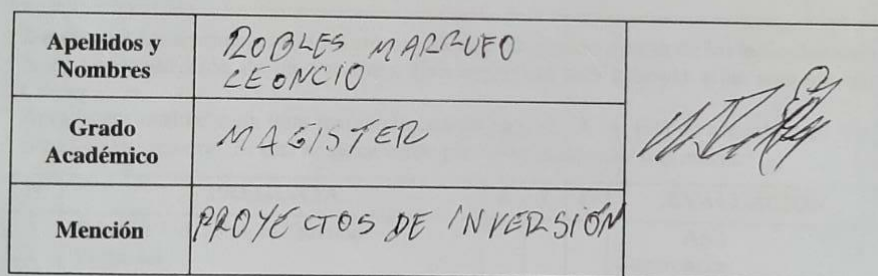 Apellidos y
Nombres
ROBLES MARRUFO
LEONCIO
Grado
Académico
MAGISTER
Mención
PROYECTOS DE INVERSIÓN